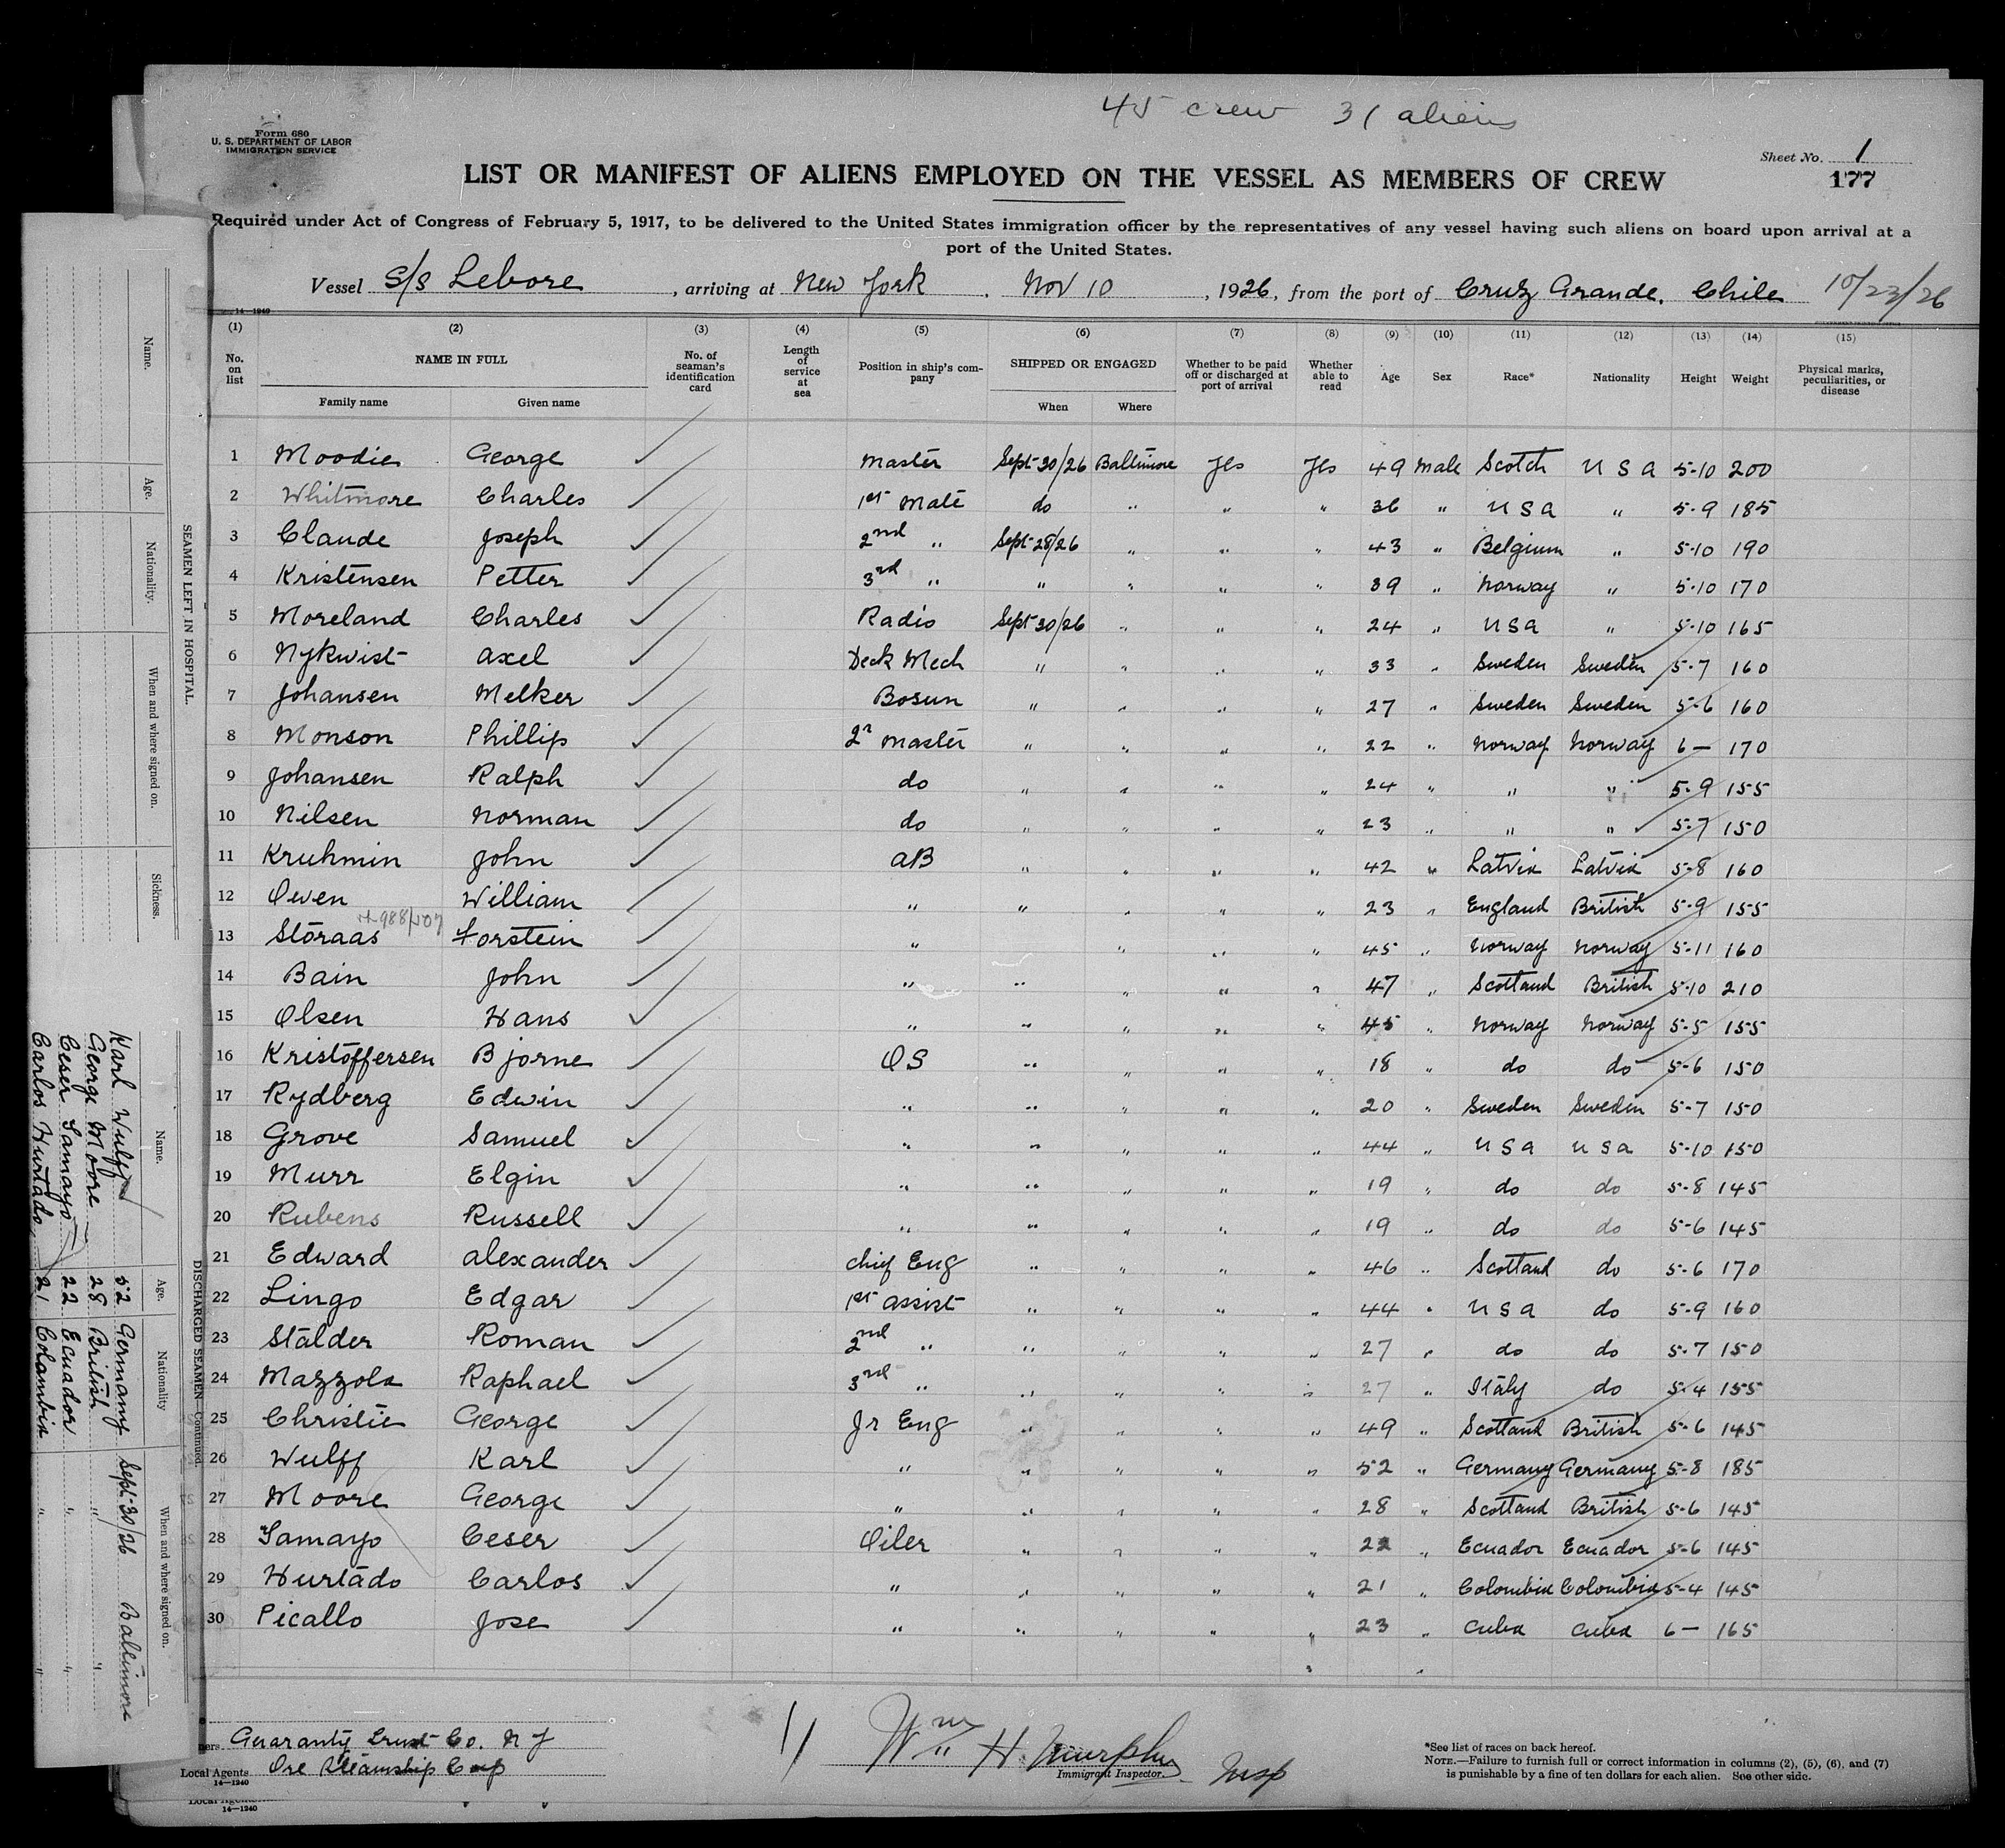 45 crew 31 aliens
Form 680
U. S. DEPARTMENT OF LABOR
IMMIGRATION SERVICE
Sheet No. 1
177
LIST OR MANIFEST OF ALIENS EMPLOYED ON THE VESSEL AS MEMBERS OF CREW
Required under Act of Congress of February 5, 1917, to be delivered to the United States immigration officer by the representatives of any vessel having such aliens on board upon arrival at a
port of the United States.
Vessel S/S Lebore, arriving at New York, Nov 10, 1926, from the port of Cruz Grande, Chile 10/23/26
14—1240
(1) (2) (3) (4) (5) (6) (7) (8) (9) (10) (11) (12) (13) (14) (15)
No. on list NAME IN FULL Family name Given name No. of seaman's identification card Length of service at sea Position in ship's company SHIPPED OR ENGAGED When Where Whether to be paid off or discharged at port of arrival Whether able to read Age Sex Race* Nationality Height Weight Physical marks, peculiarities, or disease
1 Moodie George master Sept 30/26 Baltimore Yes Yes 49 male Scotch U S A 5-10 200
2 Whitmore Charles 1st Mate do " " " 36 " U S A " 5-9 185
3 Claude Joseph 2nd " Sept 28/26 " " " 43 " Belgium " 5-10 190
4 Kristensen Petter 3rd " " " " " 39 " Norway " 5-10 170
5 Moreland Charles Radio Sept 30/26 " " " 24 " U S A " 5-10 165
6 Nykwist Axel Deck Mech " " " " 33 " Sweden Sweden 5-7 160
7 Johansen Melker Bosun " " " " 27 " Sweden Sweden 5-6 160
8 Monson Phillip 2r master " " " " 22 " Norway Norway 6- 170
9 Johansen Ralph do " " " " 24 " " " 5-9 155
10 Nilsen Norman do " " " " 23 " " " 5-7 150
11 Kruhmin John AB " " " " 42 " Latvia Latvia 5-8 160
12 Owen William " " " " " 23 " England British 5-9 155
13 Storaas Torstein " " " " 45 " Norway Norway 5-11 160
14 Bain John " " " " " 47 " Scotland British 5-10 210
15 Olsen Hans " " " " " 45 " Norway Norway 5-5 155
16 Kristoffersen Bjorne OS " " " " 18 " do do 5-6 150
17 Rydberg Edwin " " " " " 20 " Sweden Sweden 5-7 150
18 Grove Samuel " " " " " 44 " U S A U S A 5-10 150
19 Murr Elgin " " " " " 19 " do do 5-8 145
20 Rubens Russell " " " " " 19 " do do 5-6 145
21 Edward Alexander chief Eng " " " " 46 " Scotland do 5-6 170
22 Lingo Edgar 1st assist " " " " 44 " U S A do 5-9 160
23 Stalder Roman 2nd " " " " " 27 " do do 5-7 150
24 Mazzola Raphael 3rd " " " " " 27 " Italy do 5-4 155
25 Christie George Jr Eng " " " " 49 " Scotland British 5-6 145
26 Wulff Karl " " " " " 52 " Germany Germany 5-8 185
27 Moore George " " " " " 28 " Scotland British 5-6 145
28 Samayo Ceser Oiler " " " " 22 " Ecuador Ecuador 5-6 145
29 Hurtado Carlos " " " " " 21 " Colombia Colombia 5-4 145
30 Picallo Jose " " " " " 23 " Cuba Cuba 6- 165
Guaranty Trust Co. N Y
Local Agents Ore Steamship Corp
14—1240
Wm H. Murphy Insp
Immigrant Inspector.
*See list of races on back hereof.
NOTE.—Failure to furnish full or correct information in columns (2), (5), (6), and (7)
is punishable by a fine of ten dollars for each alien. See other side.
SEAMEN LEFT IN HOSPITAL.
Name. Age. Nationality. When and where signed on. Sickness.
DISCHARGED SEAMEN—Continued.
Name. Age. Nationality When and where signed on.
Karl Wulff 52 Germany Sept 30/26 Baltimore
George Moore 28 British " "
Ceser Samayo 22 Ecuador " "
Carlos Hurtado 21 Colombia " "